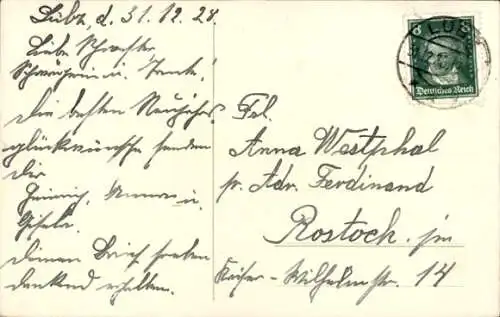 Lübz, d. 31.12.28.
Liebe Schwester,
Schwägerin u. Tante!
Die besten Neujahrs
glückwünsche senden
Dir
Heinrich, Anna u.
Gisela.
Deinen Brief soeben
dankend erhalten.
8
Deutsches Reich
LÜBZ
Frl.
Anna Westphal
p. Adr. Ferdinand
Rostock
Kaiser-Wilhelmstr. 14